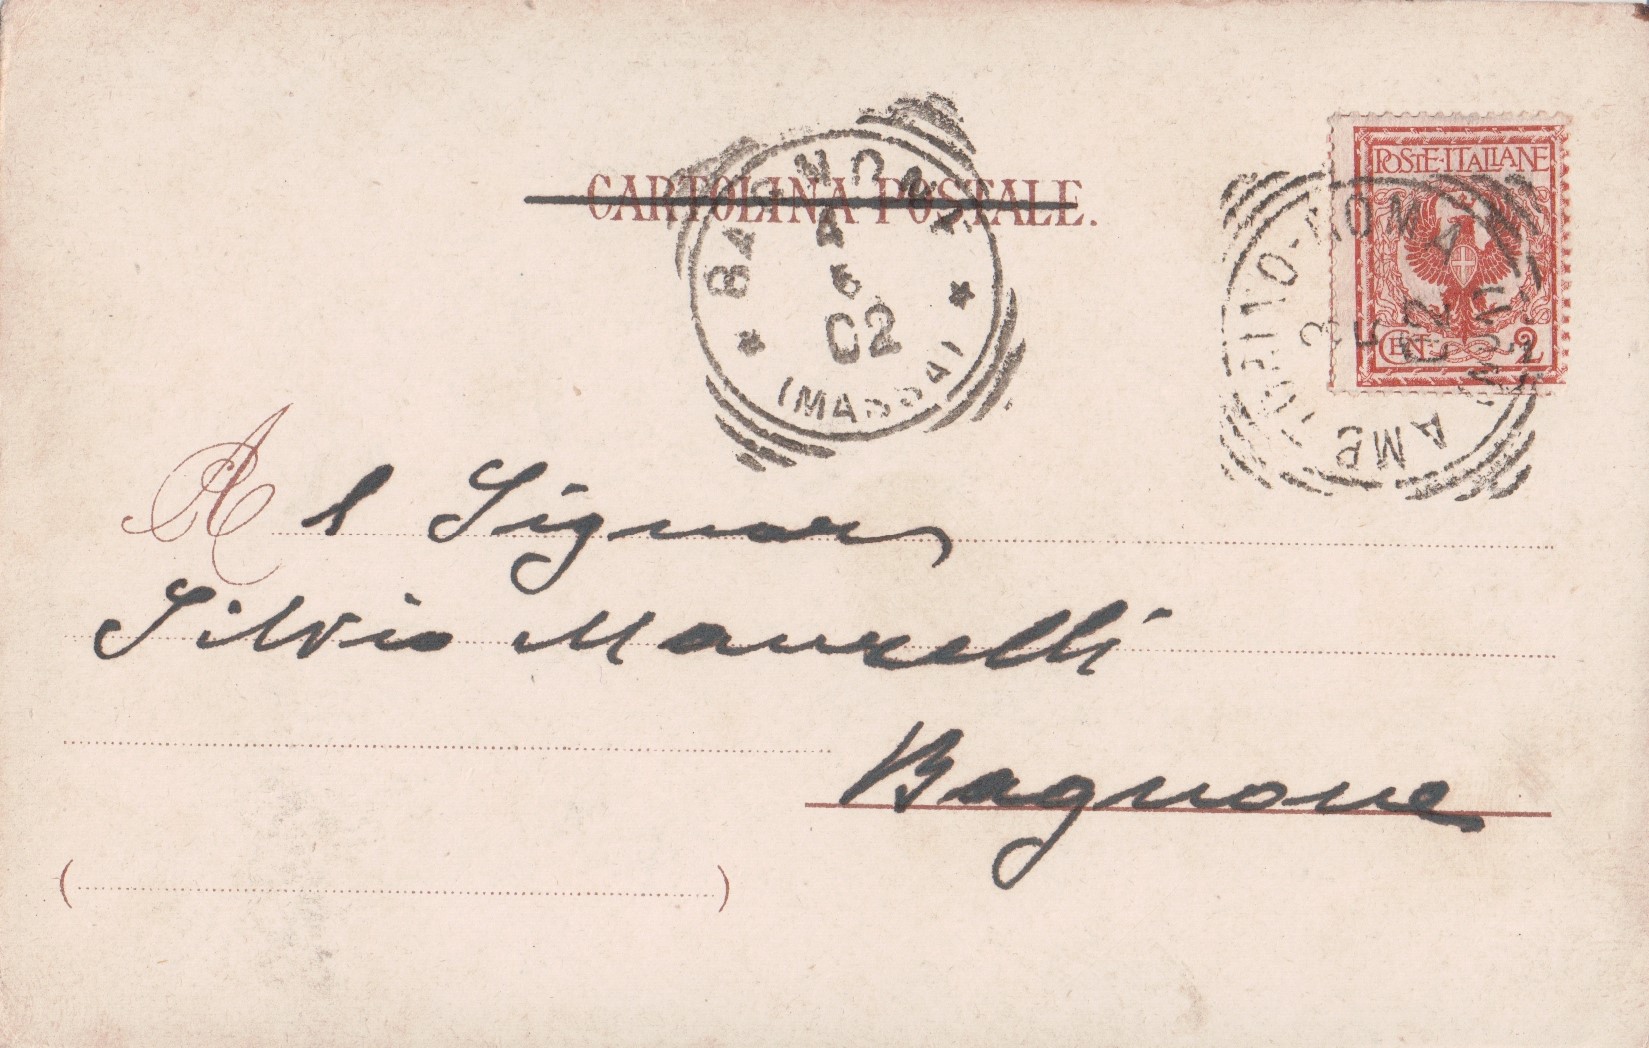 CARTOLINA POSTALE.
BAGNONE
4
5
02
(MASSA)
POSTE·ITALIANE
CENT. 2
TORINO-ROMA
AMB
02
Al Signor
Silvio Maurelli
Bagnone
( )